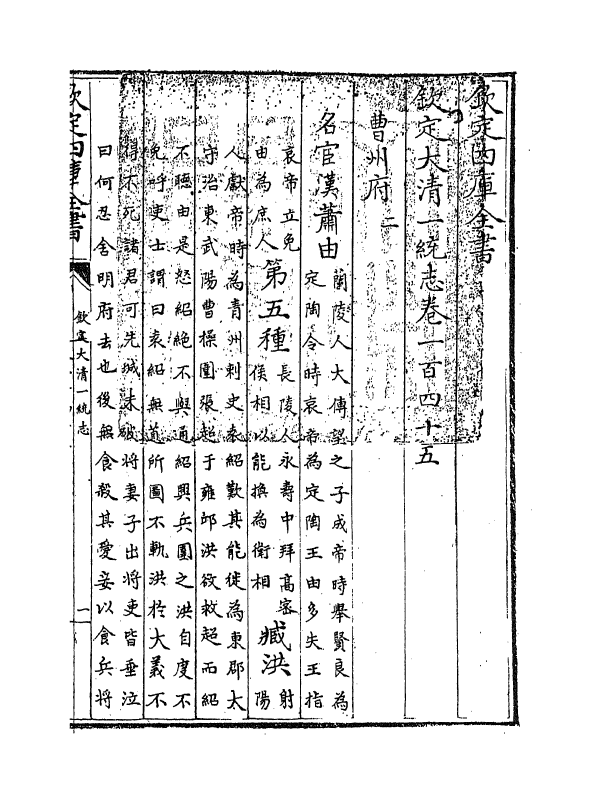 欽定四庫全書
欽定大清一統志卷一百四十五
曹州府二
名宦漢蕭由
蘭陵人太傅望之子成帝時舉賢良為
定陶令時哀帝為定陶王由多失王指
哀帝立免
由為庶人
第五種
長陵人永壽中拜高密
侯相以能換為衛相
臧洪
射
陽
人獻帝時為青州刺史袁紹歎其能徙為東郡太
守治東武陽曹操圍張超于雍邱洪欲救超而紹
不聽由是怒紹絶不與通紹興兵圍之洪自度不
免呼吏士謂曰袁紹無道所圖不軌洪於大義不
得不死諸君可先城未破將妻子出將吏皆垂泣
曰何忍舍明府去也後無食殺其愛妾以食兵將
欽定四庫全書
欽定大清一統志
一